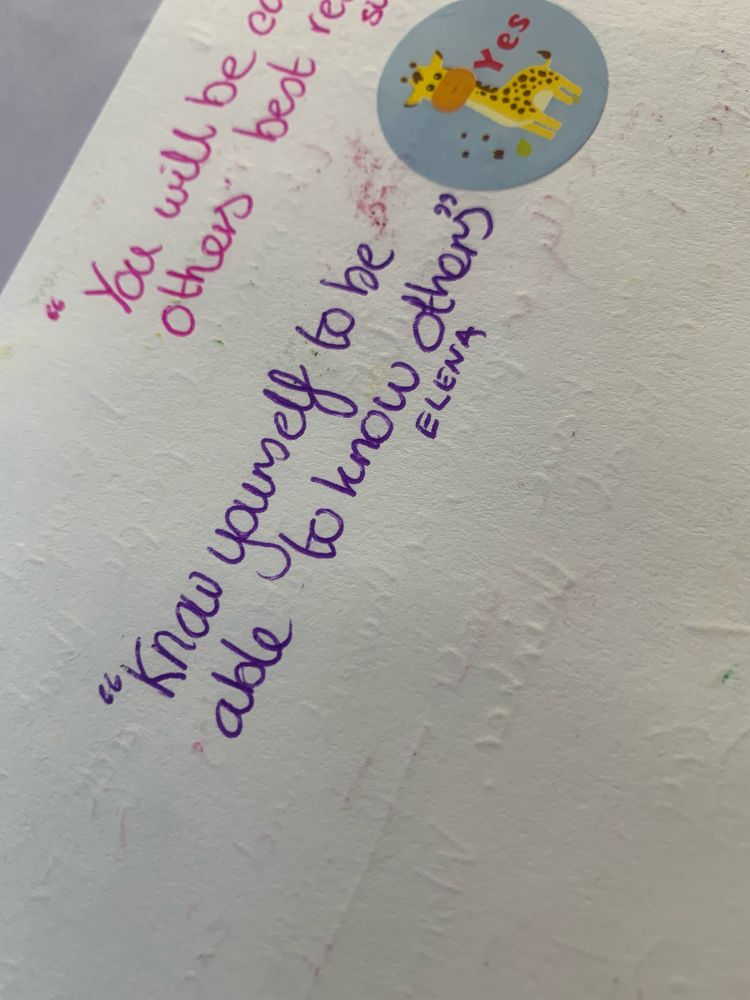 "You will be
others" best
Yes
"Know yourself to be
able to know others"
ELENA